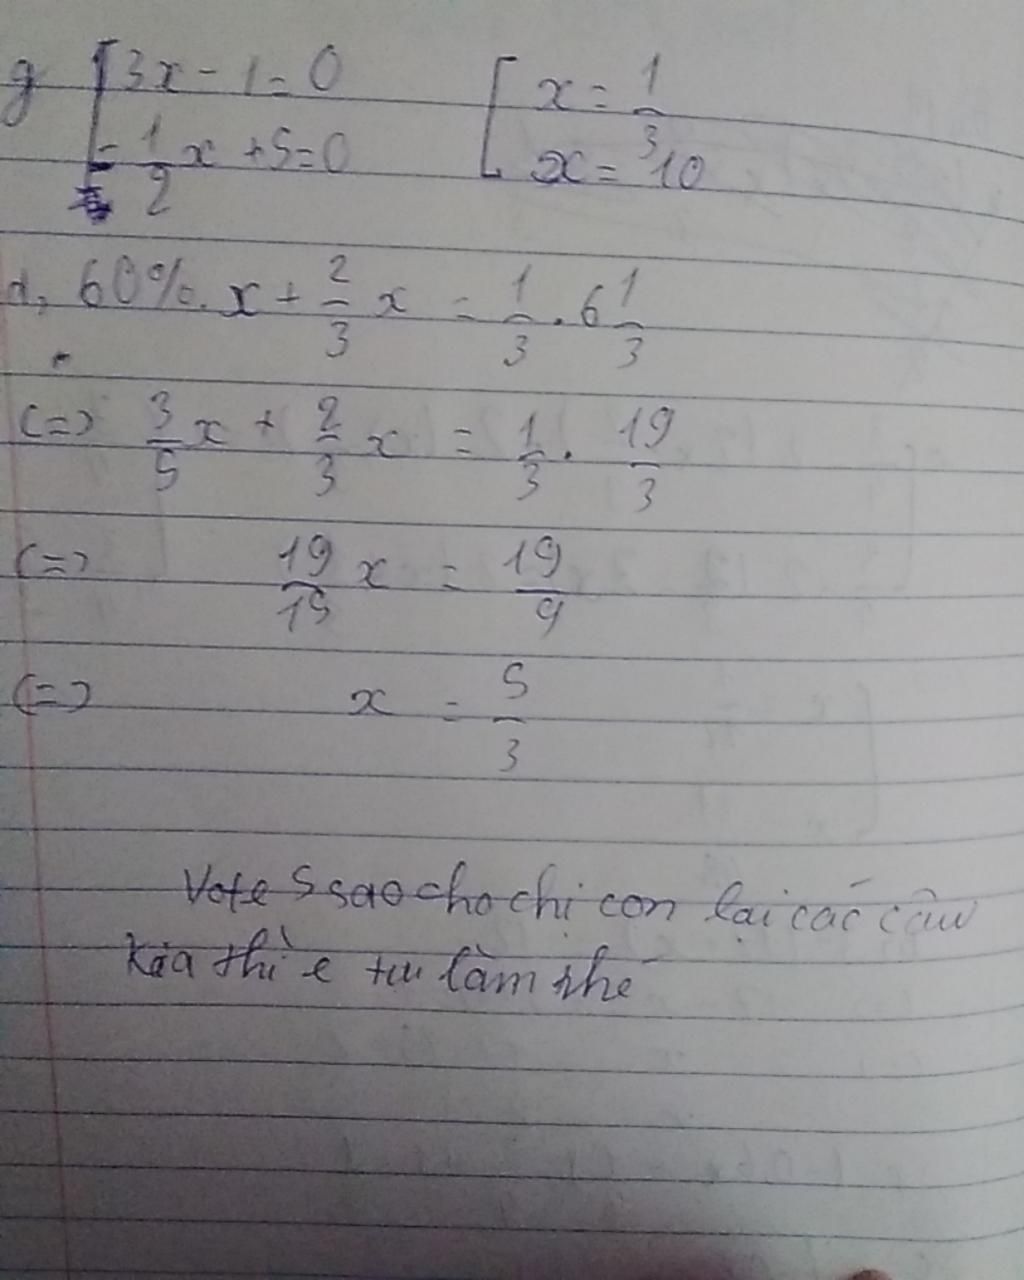 g [3x - 1 = 0 [x = 1/3
[-1/2 x + 5 = 0 [x = 10
d, 60%. x + 2/3 x = 1/3 . 6 1/3
(=) 3/5 x + 2/3 x = 1/3 . 19/3
(=) 19/15 x = 19/9
(=) x = 5/3
Vote 5 sao cho chị con lại các câu
kia thì e tự làm nhé